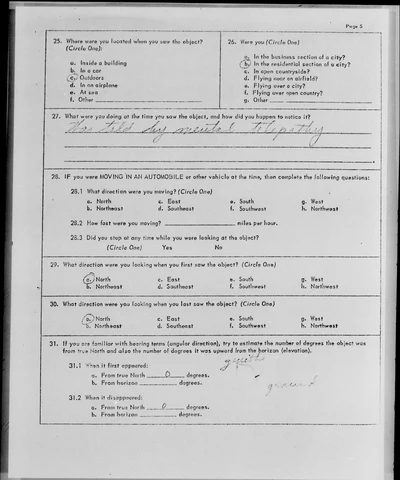 Page 5
25. Where were you located when you saw the object? 26. Were you (Circle One)
(Circle One):
a. In the business section of a city?
a. Inside a building b. In the residential section of a city?
b. In a car c. In open countryside?
c. Outdoors d. Flying near an airfield?
d. In an airplane e. Flying over a city?
e. At sea f. Flying over open country?
f. Other g. Other
27. What were you doing at the time you saw the object, and how did you happen to notice it?
Was told by mental telepathy
28. IF you were MOVING IN AN AUTOMOBILE or other vehicle at the time, then complete the following questions:
28.1 What direction were you moving? (Circle One)
a. North c. East e. South g. West
b. Northeast d. Southeast f. Southwest h. Northwest
28.2 How fast were you moving? miles per hour.
28.3 Did you stop at any time while you were looking at the object?
(Circle One) Yes No
29. What direction were you looking when you first saw the object? (Circle One)
a. North c. East e. South g. West
b. Northeast d. Southeast f. Southwest h. Northwest
30. What direction were you looking when you last saw the object? (Circle One)
a. North c. East e. South g. West
b. Northeast d. Southeast f. Southwest h. Northwest
31. If you are familiar with bearing terms (angular direction), try to estimate the number of degrees the object was
from true North and also the number of degrees it was upward from the horizon (elevation).
31.1 When it first appeared:
a. From true North 0 degrees.
b. From horizon degrees.
ground
31.2 When it disappeared:
a. From true North 0 degrees.
b. From horizon degrees.